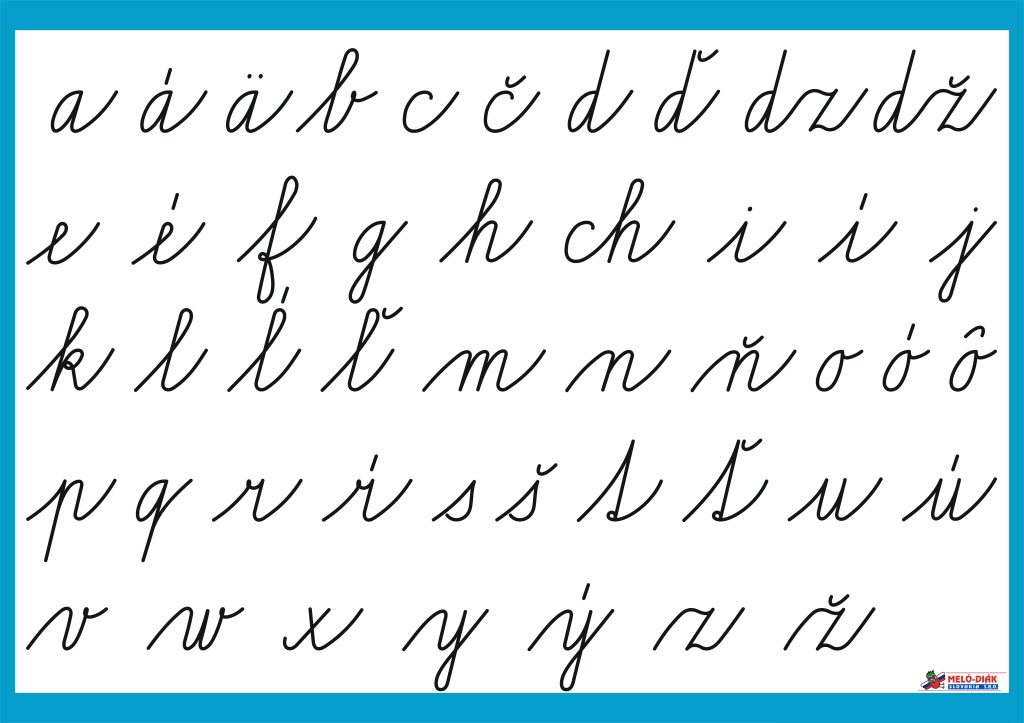 a á ä b c č d ď dz dž
e é f g h ch i í j
k l ĺ ľ m n ň o ó ô
p q r ŕ s š t ť u ú
v w x y ý z ž
MELÓ-DIÁK
SLOVAKIA S.R.O